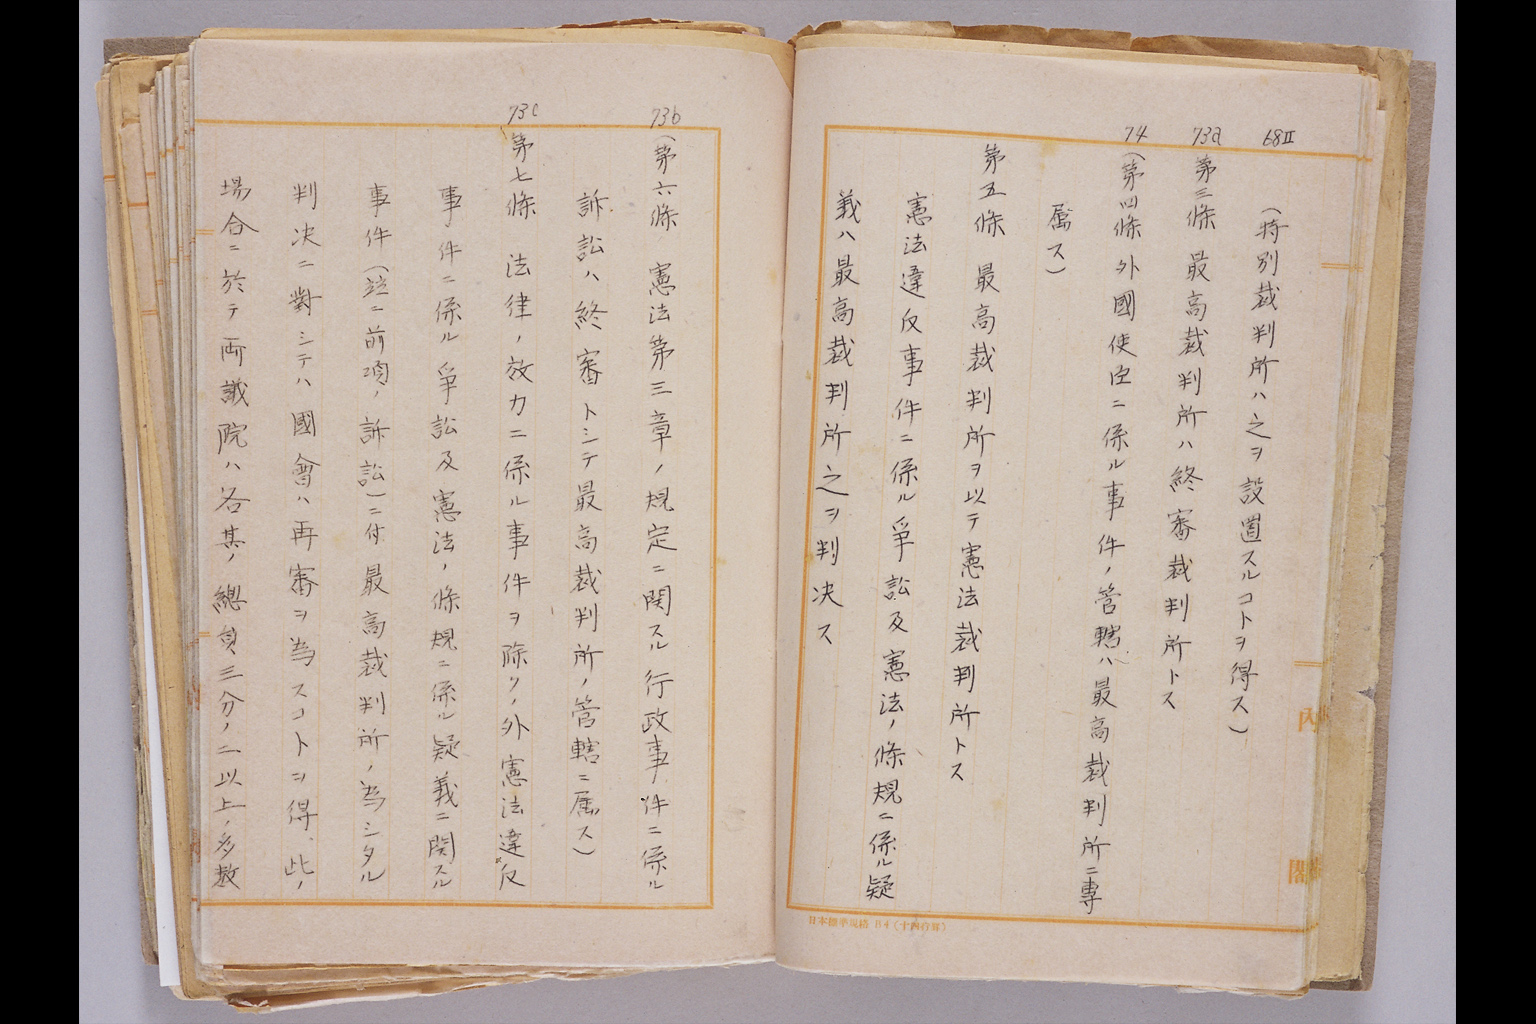 68II
(特別裁判所ハ之ヲ設置スルコトヲ得ス)
73a
第三條 最高裁判所ハ終審裁判所トス
74
(第四條 外國使臣ニ係ル事件ノ管轄ハ最高裁判所ニ專
属ス)
第五條 最高裁判所ヲ以テ憲法裁判所トス
憲法違反事件ニ係ル爭訟及憲法ノ條規ニ係ル疑
義ハ最高裁判所之ヲ判决ス
内
閣
日本標準規格 B4
73b
(第六條 憲法第三章ノ規定ニ関スル行政事件ニ係ル
訴訟ハ終審トシテ最高裁判所ノ管轄ニ属ス)
73c
第七條 法律ノ效力ニ係ル事件ヲ除クノ外憲法違反
事件ニ係ル爭訟及憲法ノ條規ニ係ル疑義ニ関スル
事件(竝ニ前項ノ訴訟)ニ付最高裁判所ノ為シタル
判决ニ對シテハ國會ハ再審ヲ為スコトヲ得、此ノ
場合ニ於テ両議院ハ各其ノ總員三分ノ二以上ノ多数